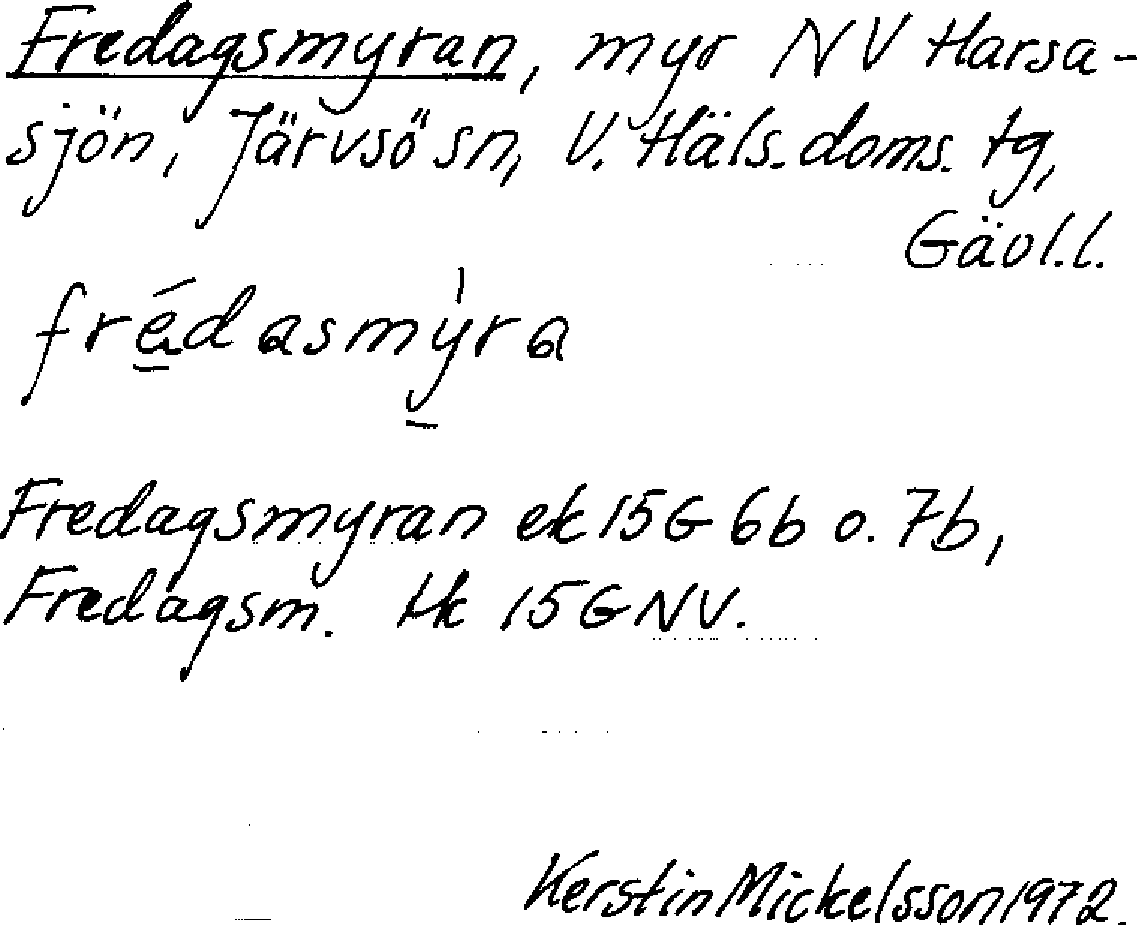 Fredagsmyran, myr NV Harsa-
sjön, Järvsö sn, V. Häls. doms. tg,
Gävl. l.
frédasmy̠̍ra
Fredagsmyran ek 15G 6b o. 7b,
Fredagsm. tk 15G NV.
Kerstin Mickelsson 1972.